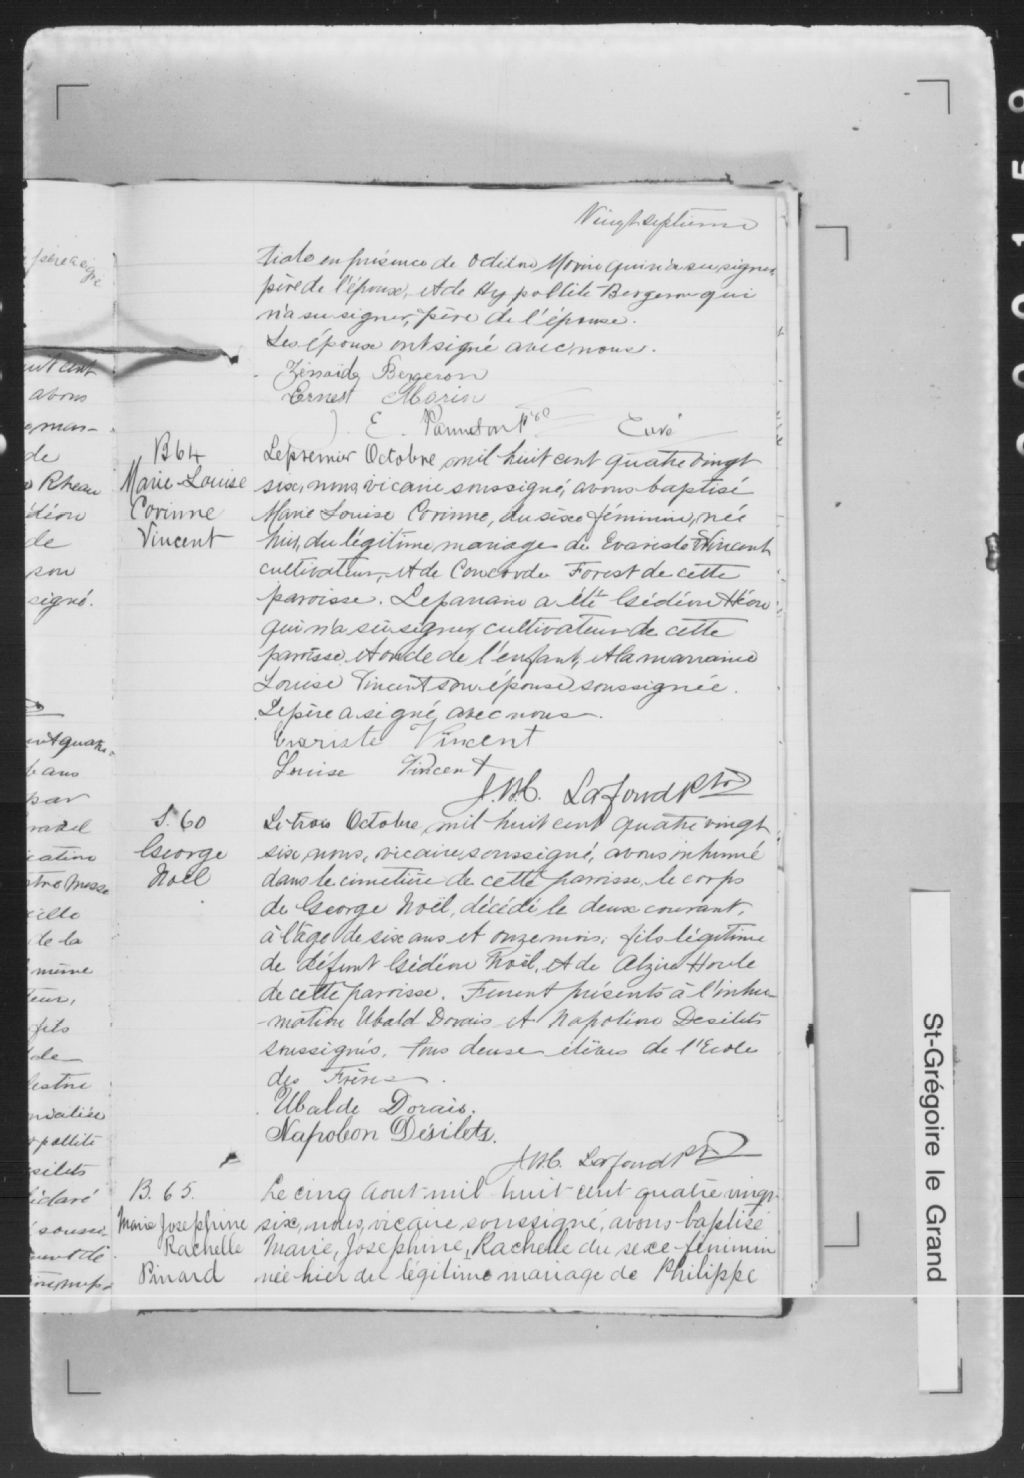 Vingt septième
tiale en présence de Odilon Morin qui n'a su signer,
père de l'époux, et de Hypollite Bergeron qui
n'a su signer, père de l'épouse.
Les époux ont signé avec nous.
Bergeron
Ernest Morin
J. E. Panneton Ptre Curé
B 64
Marie-Louise
Corinne
Vincent
Le premier Octobre, mil huit cent quatre vingt
six, nous, vicaire soussigné, avons baptisé
Marie Louise Corinne, du sexe féminin, née
hier, du légitime mariage de Evariste Vincent
cultivateur, et de Concorde Forest de cette
paroisse. Le parrain a été Gédéon Héon
qui n'a su signer, cultivateur de cette
paroisse, et oncle de l'enfant, et la marraine
Louise Vincent son épouse soussignée.
Le père a signé avec nous.
Evariste Vincent
Louise Vincent
J. M. Lafond Ptre
S. 60
George
Noël
Le trois Octobre, mil huit cent quatre vingt
six, nous, vicaire, soussigné, avons inhumé
dans le cimetière de cette paroisse, le corps
de George Noël, décédé le deux courant,
à l'âge de six ans et onze mois, fils légitime
de défunt Gédéon Noël, et de Alzire Houle
de cette paroisse. Furent présents à l'inhu-
mation Ubald Dorais et Napoléon Desilets
soussignés, tous deux élèves de l'Ecole
des Frères.
Ubalde Dorais.
Napoléon Désilets.
J. M. Lafond Ptre
B. 65.
Marie Josephine
Rachelle
Pinard
Le cinq Aout mil huit cent quatre vingt
six, nous, vicaire soussigné, avons baptisé
Marie, Josephine, Rachelle du sexe féminin
née hier du légitime mariage de Philippe
avons
de
Rheau
de
son
signé.
par
de la
même
fils
St-Grégoire le Grand